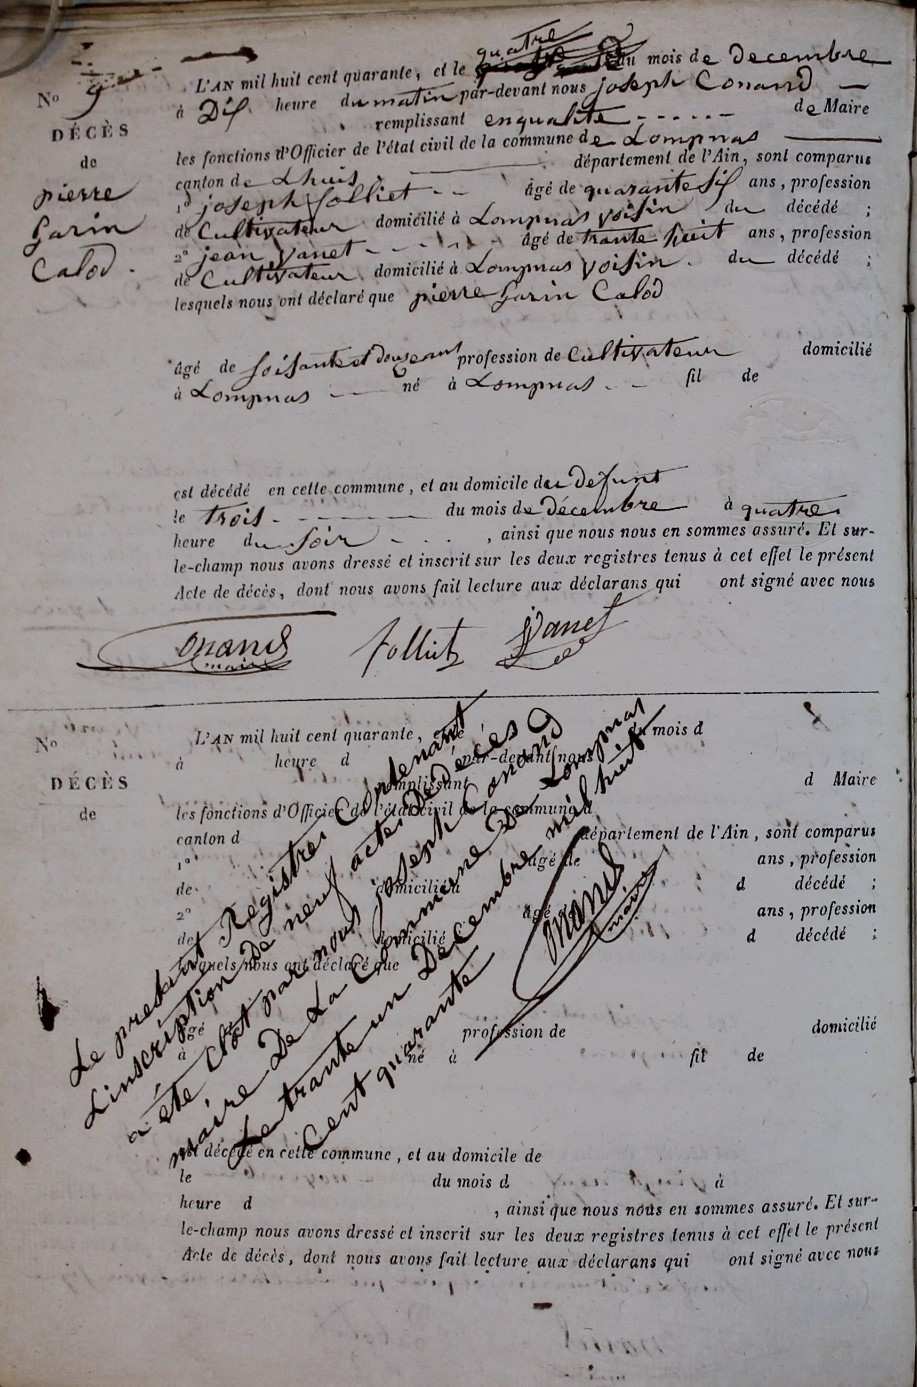 quatre
L'AN mil huit cent quarante, et le du mois de decembre
N° 9
à Dix heure du matin par-devant nous joseph Conand
remplissant en qualité de Maire
DÉCÈS
les fonctions d'Officier de l'état civil de la commune de Lompnas
de
canton de Lhuis département de l'Ain, sont comparus
pierre
1° joseph folliet âgé de quarante six ans, profession
garin
de Cultivateur domicilié à Lompnas voisin du décédé ;
Calod.
2° jean vanet âgé de trante huit ans, profession
de Cultivateur domicilié à Lompnas voisin. du décédé ;
lesquels nous ont déclaré que pierre garin Calod
âgé de soisante et douze ans profession de Cultivateur domicilié
à Lompnas né à Lompnas fil de
est décédé en cette commune, et au domicile du defunt
le trois du mois de décembre à quatre
heure du soir , ainsi que nous nous en sommes assuré. Et sur-
le-champ nous avons dressé et inscrit sur les deux registres tenus à cet effet le présent
Acte de décès, dont nous avons fait lecture aux déclarans qui ont signé avec nous
Conand folliet jVanet
maire
L'AN mil huit cent quarante, et le du mois d
N°
à heure d par-devant nous
remplissant d Maire
DÉCÈS
les fonctions d'Officier de l'état civil de la commune d
de
canton d département de l'Ain, sont comparus
1° âgé de ans, profession
de domicilié à d décédé ;
2° âgé ans, profession
de domicilié d décédé ;
lesquels nous ont déclaré que
âgé profession de domicilié
à né à fil de
est décédé en cette commune, et au domicile de
le du mois d à
heure d , ainsi que nous nous en sommes assuré. Et sur-
le-champ nous avons dressé et inscrit sur les deux registres tenus à cet effet le présent
Acte de décès, dont nous avons fait lecture aux déclarans qui ont signé avec nous
Le present Registre Contenant
L'inscription De neuf actes De Décès
a été Clot par nous joseph Conand
maire De La Commune De Lompnas
Le trante un Décembre mil huit
Cent quarante
Conand
maire